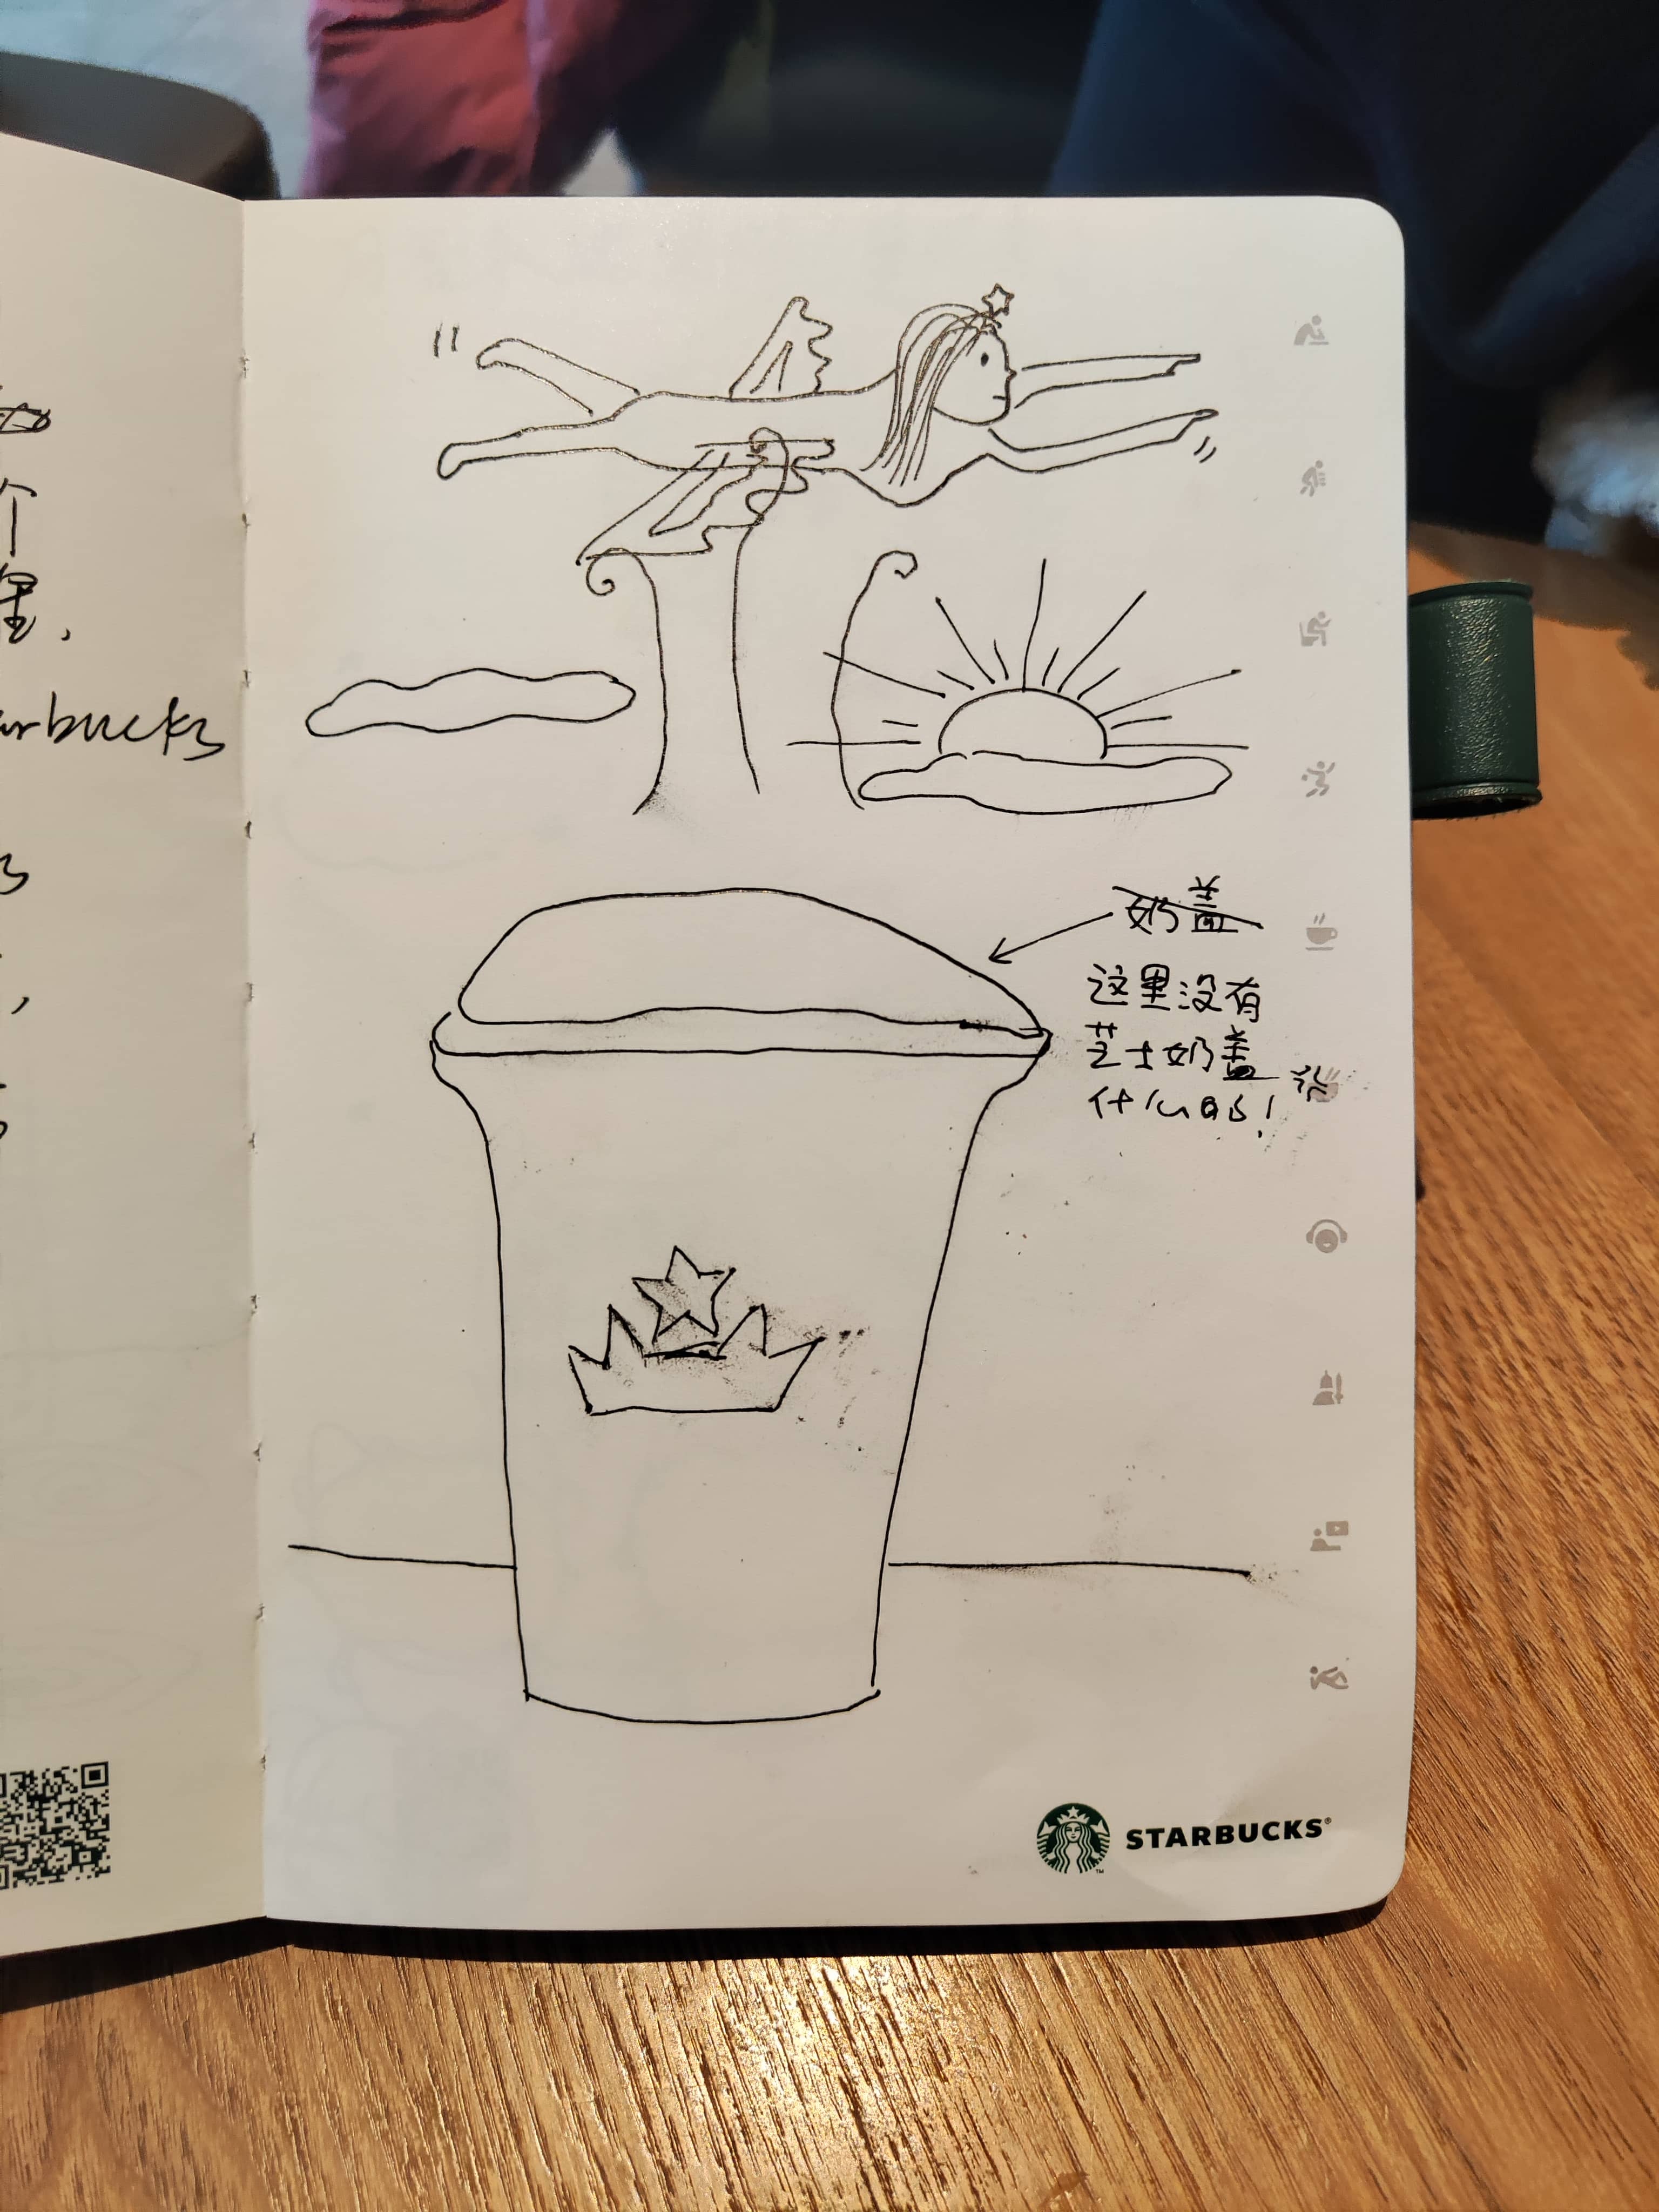 个
里，
arbucks
奶盖
这里没有
芝士奶盖
什么的！
STARBUCKS®